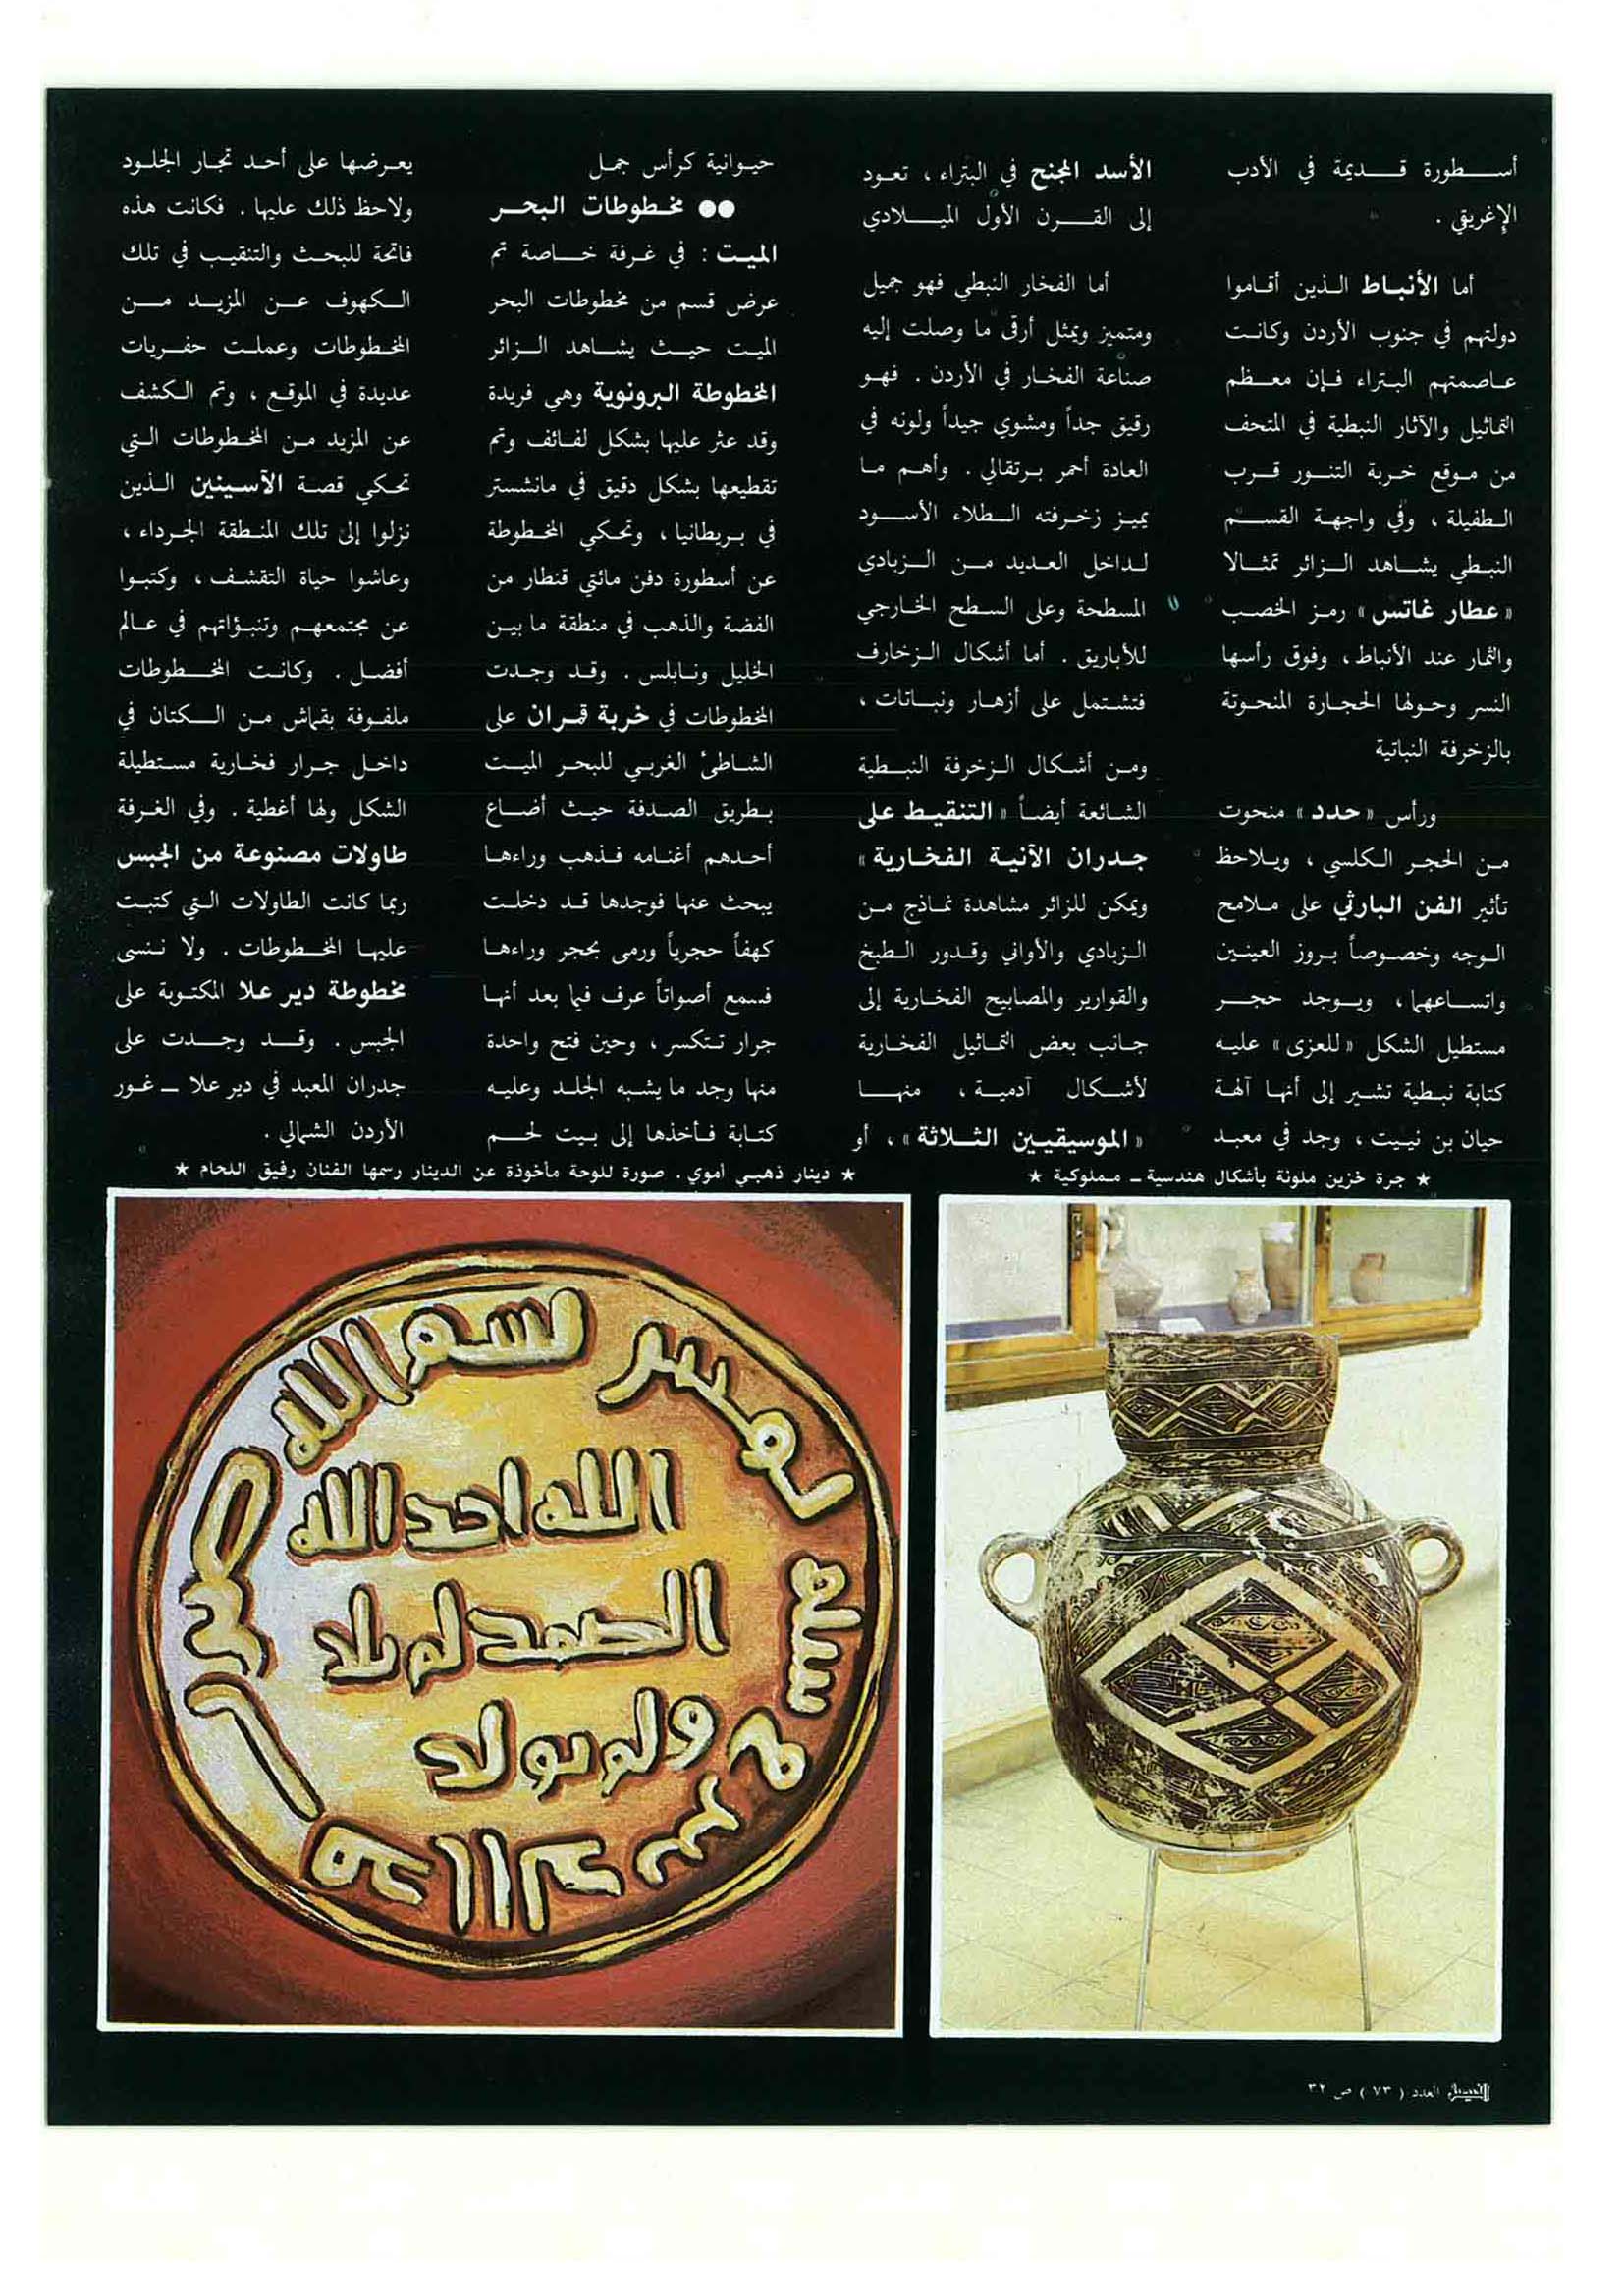 أســـطورة قـــديمة في الأدب
الإغريقي .
أما الأنبـاط الـذين أقـاموا
دولتهم في جنوب الأردن وكانـت
عـاصمتهم البـتراء فـإن معـظم
التماثيل والآثار النبطية في المتحف
من مـوقع خـربة التنـور قـرب
الـطفيلة ، وفي واجهـة القسـم
النبـطي يشـاهد الـزائر تمثـالا
« عطار غاتس » رمـز الخصـب
والثمار عند الأنباط ، وفوق رأسها
النسر وحـولها الحجـارة المنحـوتة
بالزخرفة النباتية
ورأس « حدد » منحوت
مـن الحجـر الـكلسي ، ويـلاحظ
تأثير الفن البارثي على مـلامح
الـوجه وخصـوصاً بـروز العينـين
واتسـاعهما ، ويـوجد حجـر
مستطيل الشكل « للعزى » عليـه
كتابة نبـطية تشـير إلى أنهـا آلهـة
حيان بن نيـيت ، وجد في معبـد
الأسد المجنح في البتراء ، تعـود
إلى القـرن الأول الميـلادي
أما الفخار النبطي فهو جميل
ومتميز ويمثل أرقى ما وصلت إليه
صناعة الفخـار في الأردن . فهـو
رقيق جداً ومشوي جيداً ولونه في
العادة أحمر بـرتقالي . وأهـم مـا
يميـز زخـرفته الـطلاء الأسـود
لـداخل العـديد مـن الـزبادي
المسطحة وعلى السـطح الخـارجي
للأباريق . أما أشكال الـزخارف
فتشـتمل على أزهـار ونبـاتات ،
ومـن أشـكال الـزخرفة النبـطية
الشـائعة أيضـاً « التنقيـط على
جـدران الآنيـة الفخـارية »
ويمكن للزائر مشاهدة نمـاذج مـن
الـزبادي والأواني وقـدور الـطبخ
والقوارير والمصابيح الفخـارية إلى
جـانب بعض التمـاثيل الفخـارية
لأشـكال آدميـة ، منهـا
« الموسيقيـين الثـلاثة » ، أو
حيـوانية كـرأس جمـل
●● مخـطوطات البحـر
الميـت : في غـرفة خـاصة تم
عرض قسم من مخطوطات البحر
الميـت حيـث يشـاهد الـزائر
المخطوطة البرونوية وهي فريدة
وقد عثر عليها بشكل لفـائف وتم
تقطيعها بشكل دقيق في مانشستر
في بـريطانيا ، وتحـكي المخـطوطة
عن أسطورة دفن مائتي قنطار من
الفضة والذهب في منطقة ما بـين
الخليل ونـابلس . وقـد وجـدت
المخطوطات في خربة قمـران على
الشـاطئ الغربـي للبحـر الميـت
بـطريق الصـدفة حيـث أضـاع
أحـدهم أغنـامه فـذهب وراءهـا
يبحث عنها فوجدها قـد دخلـت
كهفاً حجرياً ورمى بحجر وراءهـا
فسمع أصواتاً عرف فيما بعد أنهـا
جرار تـتكسر ، وحين فتح واحدة
منها وجد ما يشبه الجلـد وعليـه
كتـابة فـأخذها إلى بيـت لحـم
يعـرضها على أحـد تجـار الجلـود
ولاحظ ذلك عليها . فكانت هذه
فاتحة للبحـث والتنقيـب في تلك
الـكهوف عـن المزيـد مـن
المخـطوطات وعملـت حفـريات
عديدة في الموقـع ، وتم الـكشف
عن المزيد مـن المخـطوطات الـتي
تحـكي قصـة الآسـينين الـذين
نزلوا إلى تلك المنـطقة الجـرداء ،
وعاشوا حياة التقشـف ، وكتبـوا
عن مجتمعهـم وتنبـؤاتهم في عـالم
أفضل . وكـانت المخـطوطات
ملفـوفة بقماش مـن الـكتان في
داخـل جـرار فخـارية مسـتطيلة
الشكل ولها أغطية . وفي الغـرفة
طاولات مصنوعة من الجبس
ربما كانت الطاولات الـتي كتبـت
عليهـا المخـطوطات . ولا نـنسى
مخطوطة دير علا المكتـوبة على
الجبس . وقـد وجـدت على
جدران المعبد في دير علا ـ غـور
الأردن الشمالي .
★ جرة خزين ملونة بأشكال هندسية ـ مـملوكية ★
★ دينار ذهبـي أموي . صورة للوحة مأخوذة عن الدينار رسمها الفنان رفيق اللحام ★
الله احد الله
الصمد لم يلد
ولم يولد
الفيصل العدد ( ٧٣ ) ص ٣٢